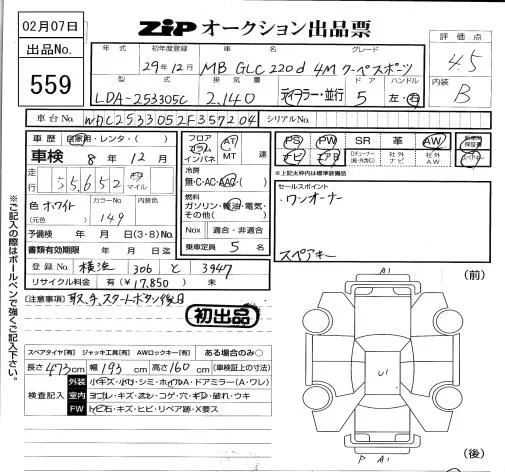 02月07日
ZIP オークション出品票
出品No.
559
評価点
4.5
内装
B
年式 初年度登録 車名 グレード
29年12月 MB GLC 220d 4M クーペスポーツ
型式 排気量 ドア ハンドル
LDA-253305C 2,140 ディーラー・並行 5 左・右
車台No. WDC2533052F357204 シリアルNo.
車歴 自家用・レンタ・( )
車検 8年12月
走行 55,652 km マイル
色 ホワイト カラーNo. 149 内装色
(元色)
予備検 年 月 日(3・8)No.
書類有効期限 年 月 日迄
登録No. 横浜 306 と 3947
リサイクル料金 有(¥17,850) 未
フロア コラム インパネ
AT MT 速
冷房 無・C・AC・AAC・( )
燃料 ガソリン・軽油・電気・その他( )
Nox 適合・非適合
乗車定員 5 名
PS PW SR 革 AW 新車時保証書
ナビ エアB Dチューナー(純・外含む) 社外ナビ 社外AW スペアキー
※上記太枠内は標準装備品
セールスポイント
ワンオーナー
スペアキー
[注意事項] 取、手、スタートボタン後日
初出品
スペアタイヤ[有] ジャッキ工具[有] AWロックキー[有] ある場合のみ○
長さ473cm 幅193cm 高さ160cm (車検証上の寸法)
検査記入
外装 小キズ・小凹・シミ・ホイルA・ドアミラー(A・ワレ)
室内 ヨゴレ・キズ・スレ・コゲ・穴・キレ・破れ・ウキ
FW トビ石・キズ・ヒビ・リペア跡・X要ス
※ご記入の際はボールペンで強くご記入下さい。
(前)
A1
U1
P A1
(後)